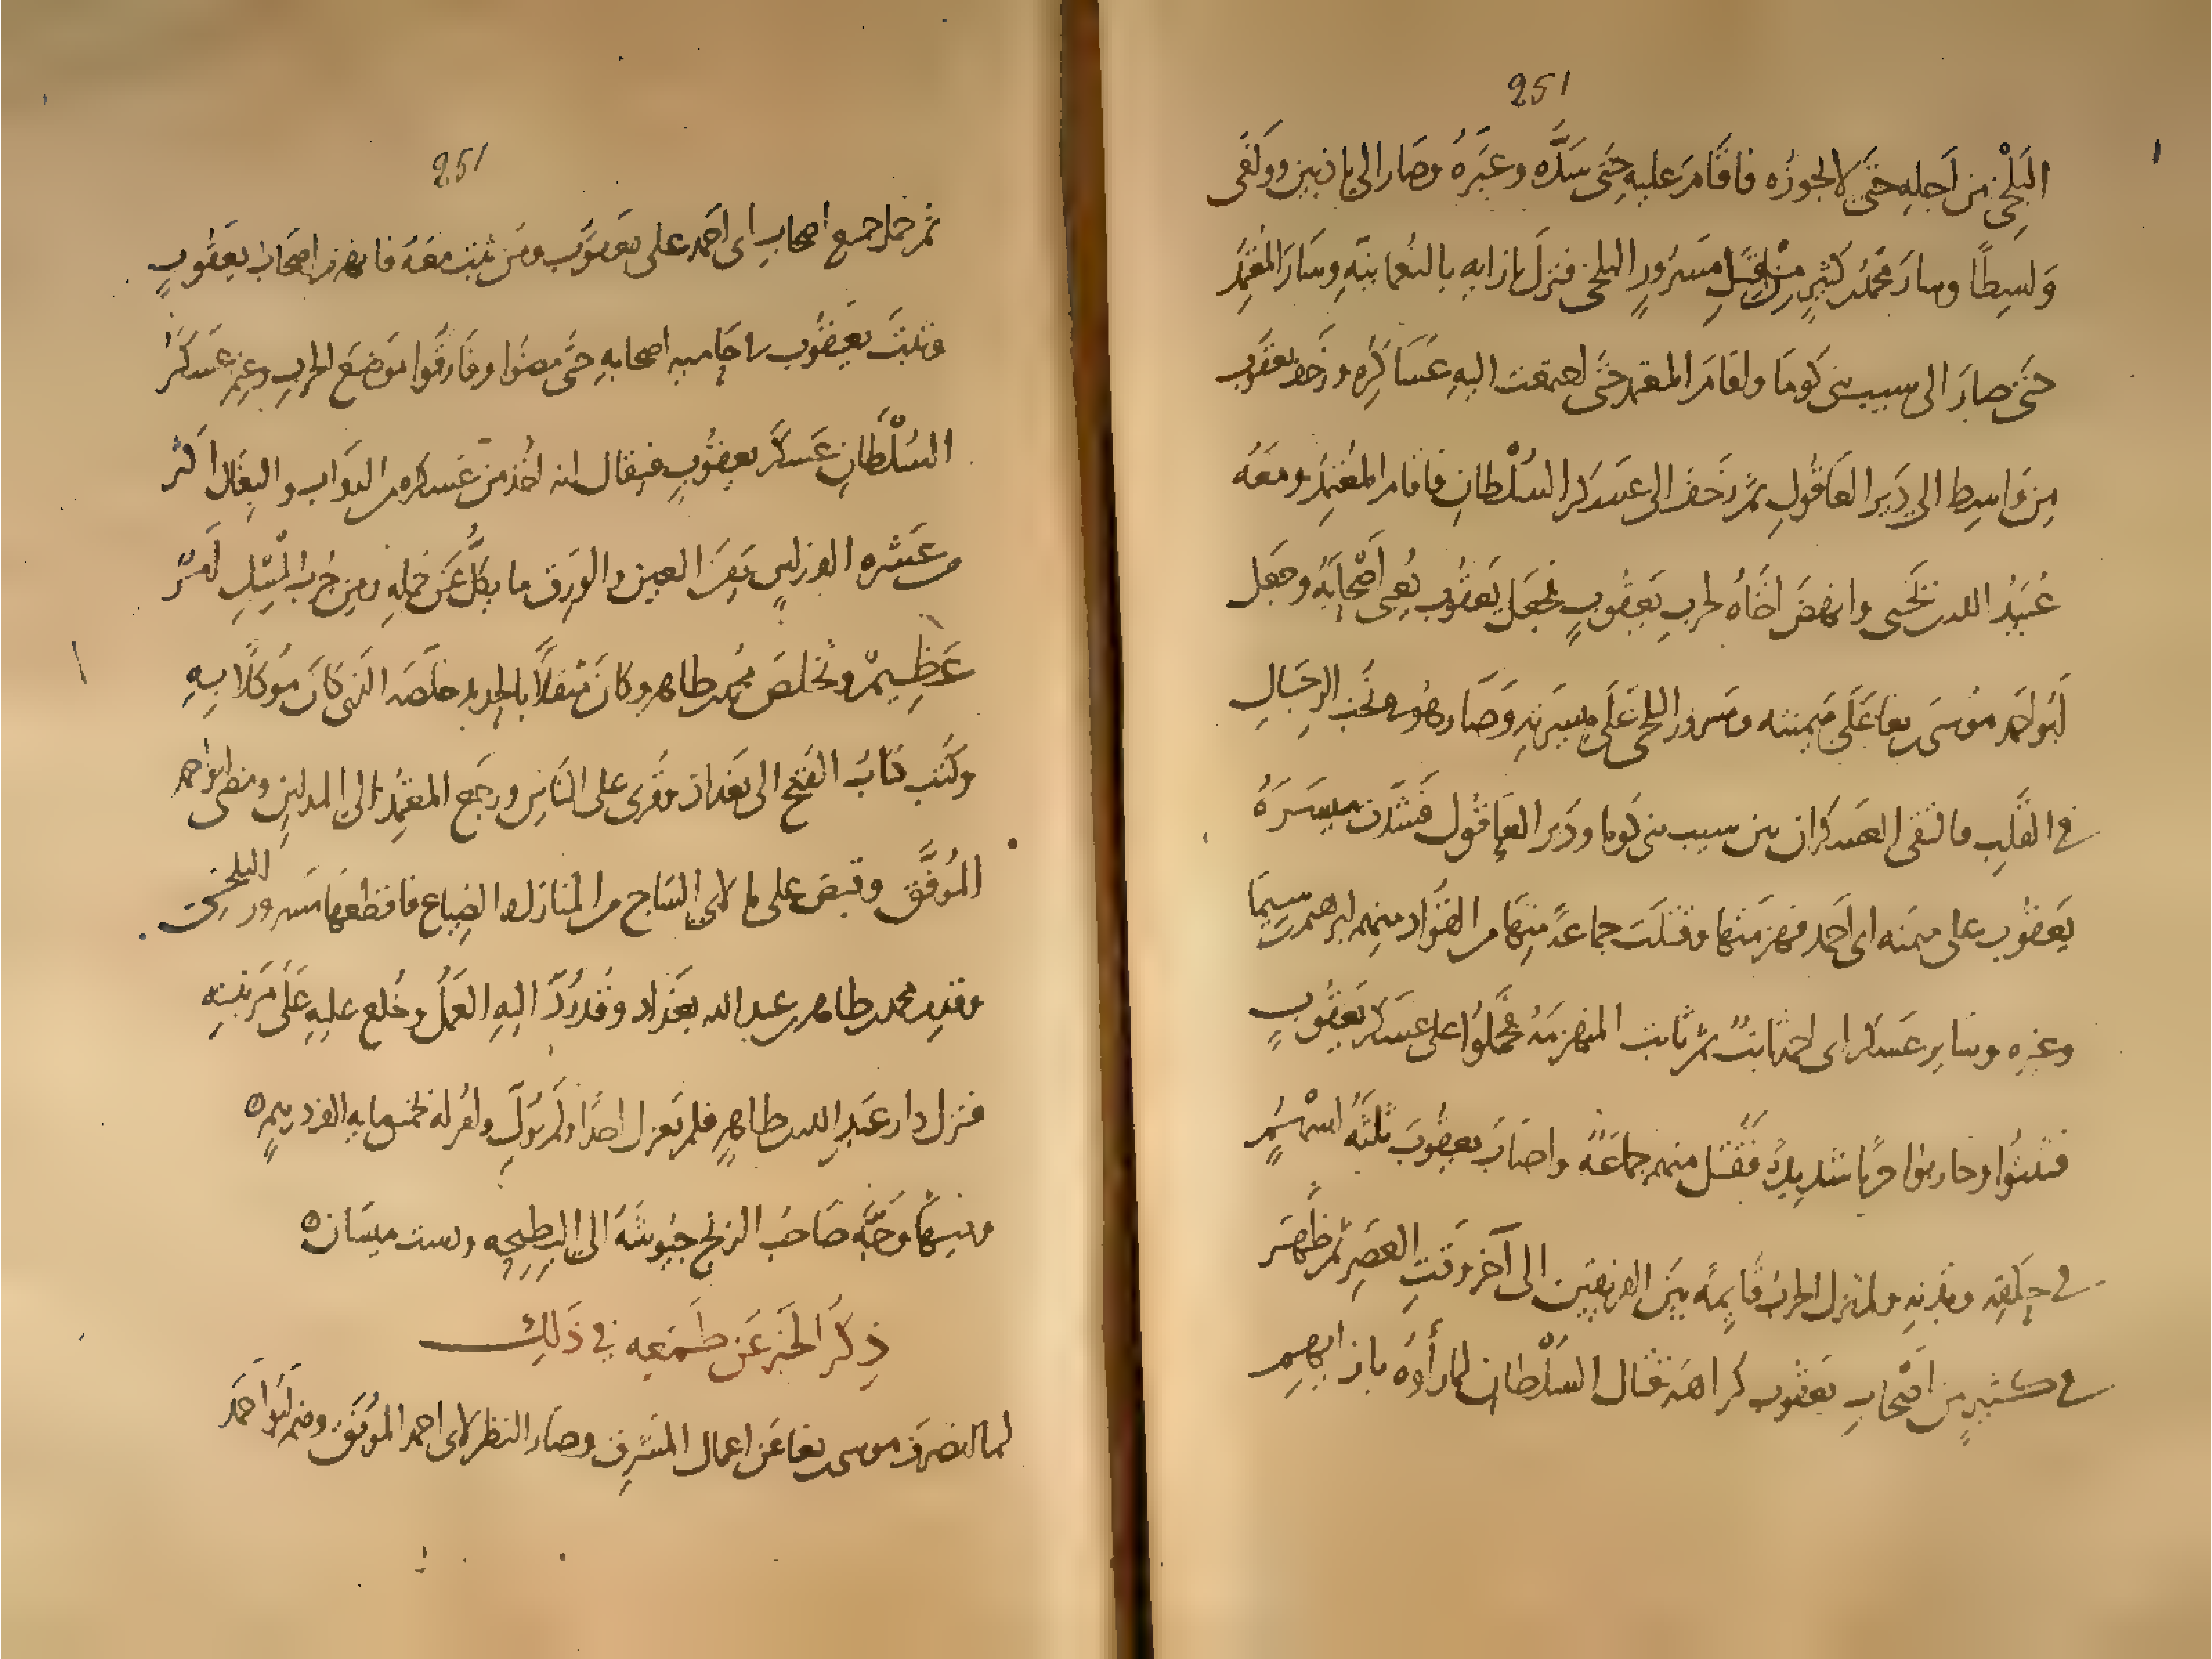 251
البَلْخي من اَجلِهِ حتَّى لا يجوزُه فاقَامَ عليهِ حتَّى سَدَّه وعَبَرَهُ وصَار الى باذبين ووَافَى
وَاسِطًا وسارَ محمّد كثيرٍ من قِبَلِ مَسْرُورٍ البلخى فنزل بازايه بالنُعمانيّهِ وسَارَ المُعْتمِدُ
حَتى صارَ الى سيب بنى كومَا واقَامَ المعتمد حتّى اجتمعت اليهِ عَسَاكِرُه وزَحفَ يعقُوب
مِن وَاسِطٍ الى دَير العَاقُولِ ثمّ زَحَفَ الى عَسكَر السُلْطانِ فاقامَ المُعْتمِدُ ومعَهُ
عُبَيْدُ الله بن يَحْيى وانهَضَ اَخَاهُ لحربِ يَعقُوبٍ فجعَلَ يَعقُوب يُعبى اَصْحَابَهُ وجَعل
اَبُو احمَد مُوسَى بن بغا عَلَى مَيمنته ومَسرور البلخى عَلَى مَيسَرَتِهِ وَصَارَ هُو فى نُخَب الرِجَالِ
فى القَلبِ فالتقى العَسكران بين سيب بنى كوما ودَير العاقُول فَشدّت مَيسَرَةُ
يَعقُوب على ميمَنه ابى اَحمد فهَزمَتها وقَتلَت جماعَةً مِنهَا من القُوّاد مِنهم ابرهيم بن سِيمَا
وغَيره وسَاير عَسكر ابى احمد ثابتٌ ثم ثابت المنهزمَهُ فحمَلوا على عَسكر يَعقُوبٍ
فثبتُوا وحاربوا حربًا شَدِيدهً فقُتل منهم جماعَةً واصَابَ يعقُوبَ ثلثَهُ اسْهُمٍ
فى حَلقِه وبدَنهِ ولم تزل الحربُ قايمهً بَينَ الفريقَين الى آخر وقتِ العَصرِ ثم ظَهَرَ
فى كثيرٍ من اَصْحابِ يعقُوب كراهَة قتال السُلْطان لما رأوه بازايهِم
251
ثم حمل جميع اصحابِ ابى اَحمد على يعقوب ومَن ثبت معَهُ فانهزمَ اصحَابُ يَعقُوبٍ
وثبتَ يَعقُوب فى حاميه اصحابهِ حتّى مضَوا وفارقُوا موضعَ الحربِ وغنم عَسكَرُ
السُلْطانِ عَسكَر يعقُوبٍ فيقال انه اُخذ من عَسكره من الدوَاب والبِغَال اكثر
من عَشره الف راسٍ ومِنَ العينِ والورَق ما يكلُّ عَن حَملِهِ ومِن جُربِ المِسْكِ اَمْرٌ
عَظِيمٌ وتخلصَ محمد طاهر وكانَ مُثقلاً بالحديد خلَصَه الذى كانَ مُوكلًا بِهِ
وكُتب كتابُ الفَتح الى بَغداذ فقُرى على النَاسِ ورجَع المعتمِدُ الى المداينِ ومضى ابو احمد
المُوفَّق وقبض على ما لابى السَاج من المنازل والضِياع فاقطعهَا مَسرور البلخى
وقدِم محمد طاهر بن عبد الله بغَداد وقد رُدّ اليهِ العَمَلُ وخُلع عليهِ عَلى مَرتبتهِ
فنزل دار عَبدِ الله بن طاهِرٍ فلم يَعزل احدًا ولم يُولّ وامُر له بخمسمايه الف درهمٍ
وفيهَا وَجّهَ صَاحبُ الزنج جيُوشَهَ الى البطِيحه ودست ميسَان
ذِكرُ الخَبَر عَن طَمَعِه فى ذَلِك
لما انصرَف موسى بن بغا عَن اعمال المشرِق وصَار النظر لابى احمد المُوفَّق وضم اَبو اَحمَد